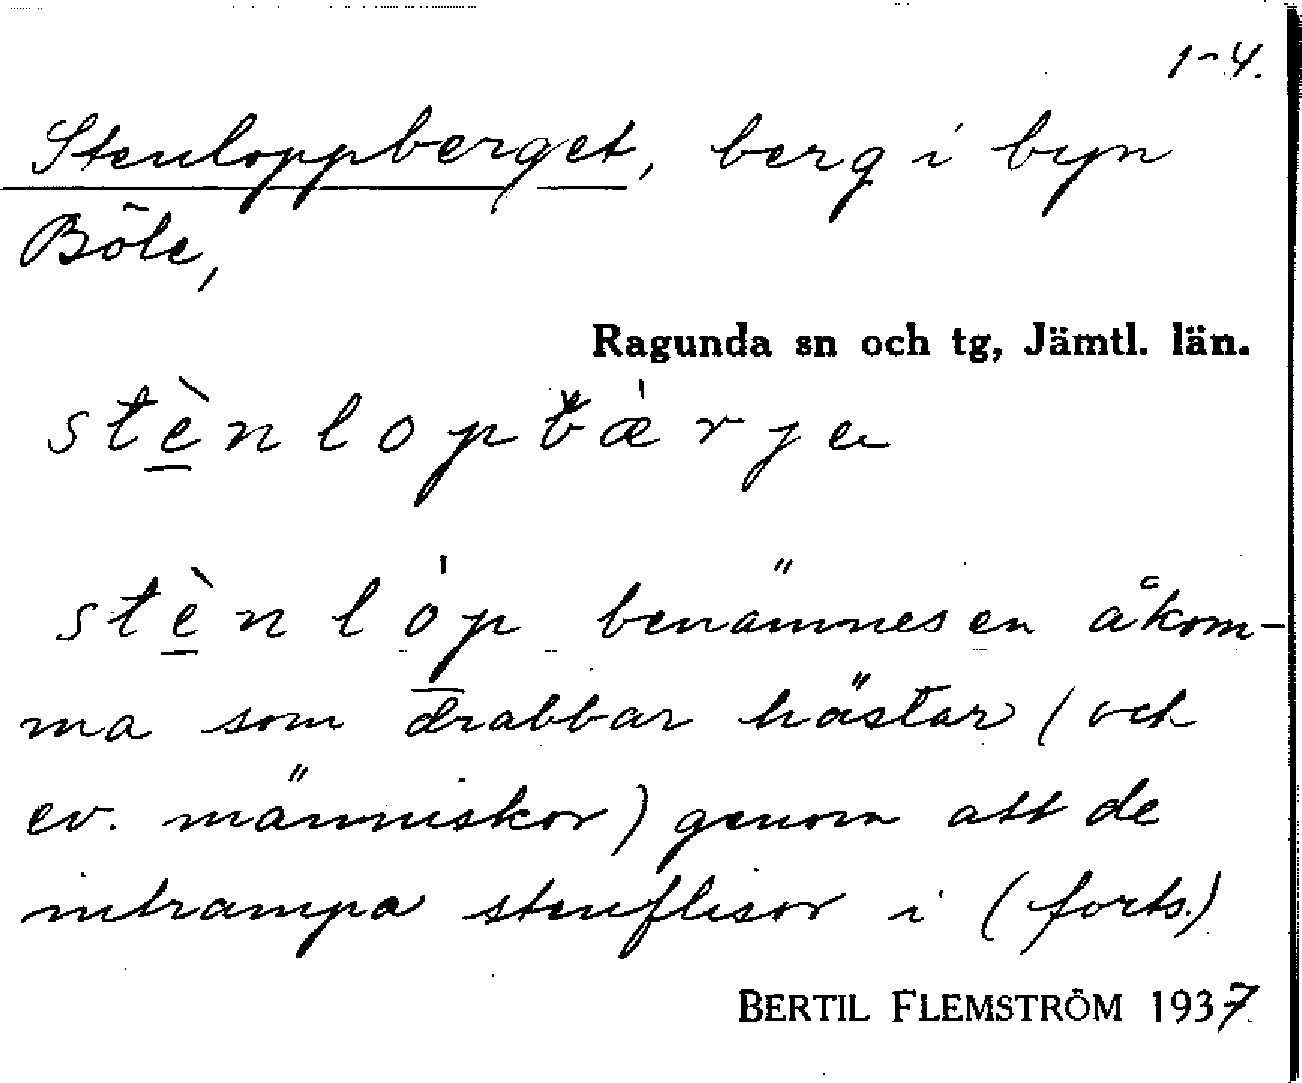 1-4.
Stenloppberget, berg i byn
Böle,
Ragunda sn och tg, Jämtl. län.
stènlopbærje
stènlop benämnes en åkom-
ma som drabbar hästar (och
ev. människor) genom att de
intrampa stenflisor i (forts.)
BERTIL FLEMSTRÖM 1937